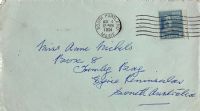 Miss Anne Nichols
Box 8
Tumby Bay
Eyre Peninsular
South Australia